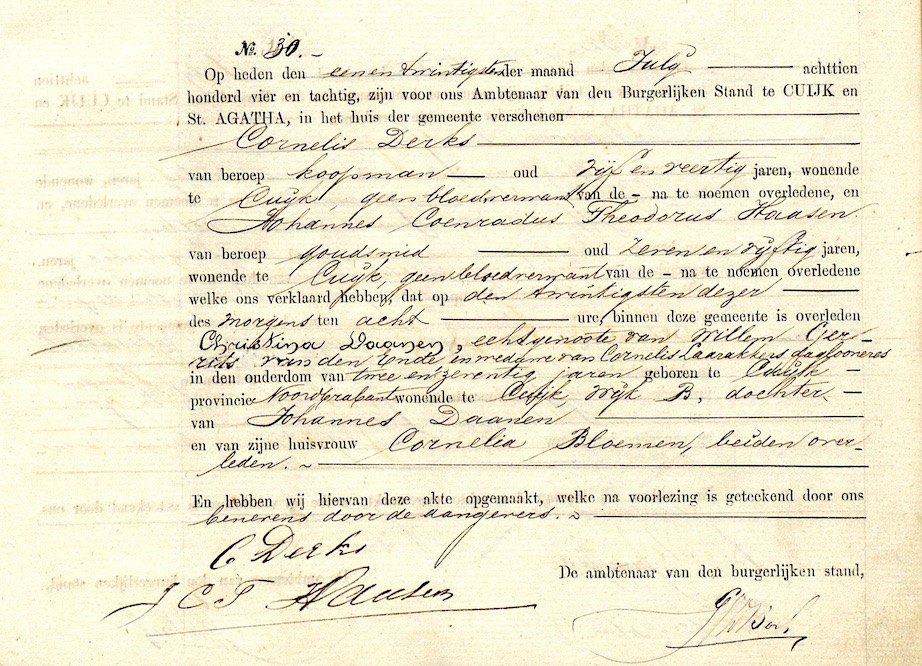 No. 30.
Op heden den eenen twintigsten der maand July achttien
honderd vier en tachtig, zijn voor ons Ambtenaar van den Burgerlijken Stand te CUIJK en
St. AGATHA, in het huis der gemeente verschenen
Cornelis Derks
van beroep koopman oud vijf en veertig jaren, wonende
te Cuijk geen bloedverwant van de - na te noemen overledene, en
Johannes Coenradus Theodorus Haasen
van beroep goudsmid oud zeven en vijftig jaren,
wonende te Cuijk, geen bloedverwant van de - na te noemen overledene
welke ons verklaard hebben, dat op den twintigsten dezer
des morgens ten acht ure, binnen deze gemeente is overleden
Christina Daanen, echtgenoote van Willem Ger-
rits van den Ende, en weduwe van Cornelis Laarakkers dagloneres
in den ouderdom van twee en zeventig jaren geboren te Cuijk -
provincie Noordbrabant wonende te Cuijk, Wijk B, dochter -
van Johannes Daanen
en van zijne huisvrouw Cornelia Bloemen, beiden over-
leden.
En hebben wij hiervan deze akte opgemaakt, welke na voorlezing is geteekend door ons
benevens door de aangevers.
C Derks
De ambtenaar van den burgerlijken stand,
J C T Haasen